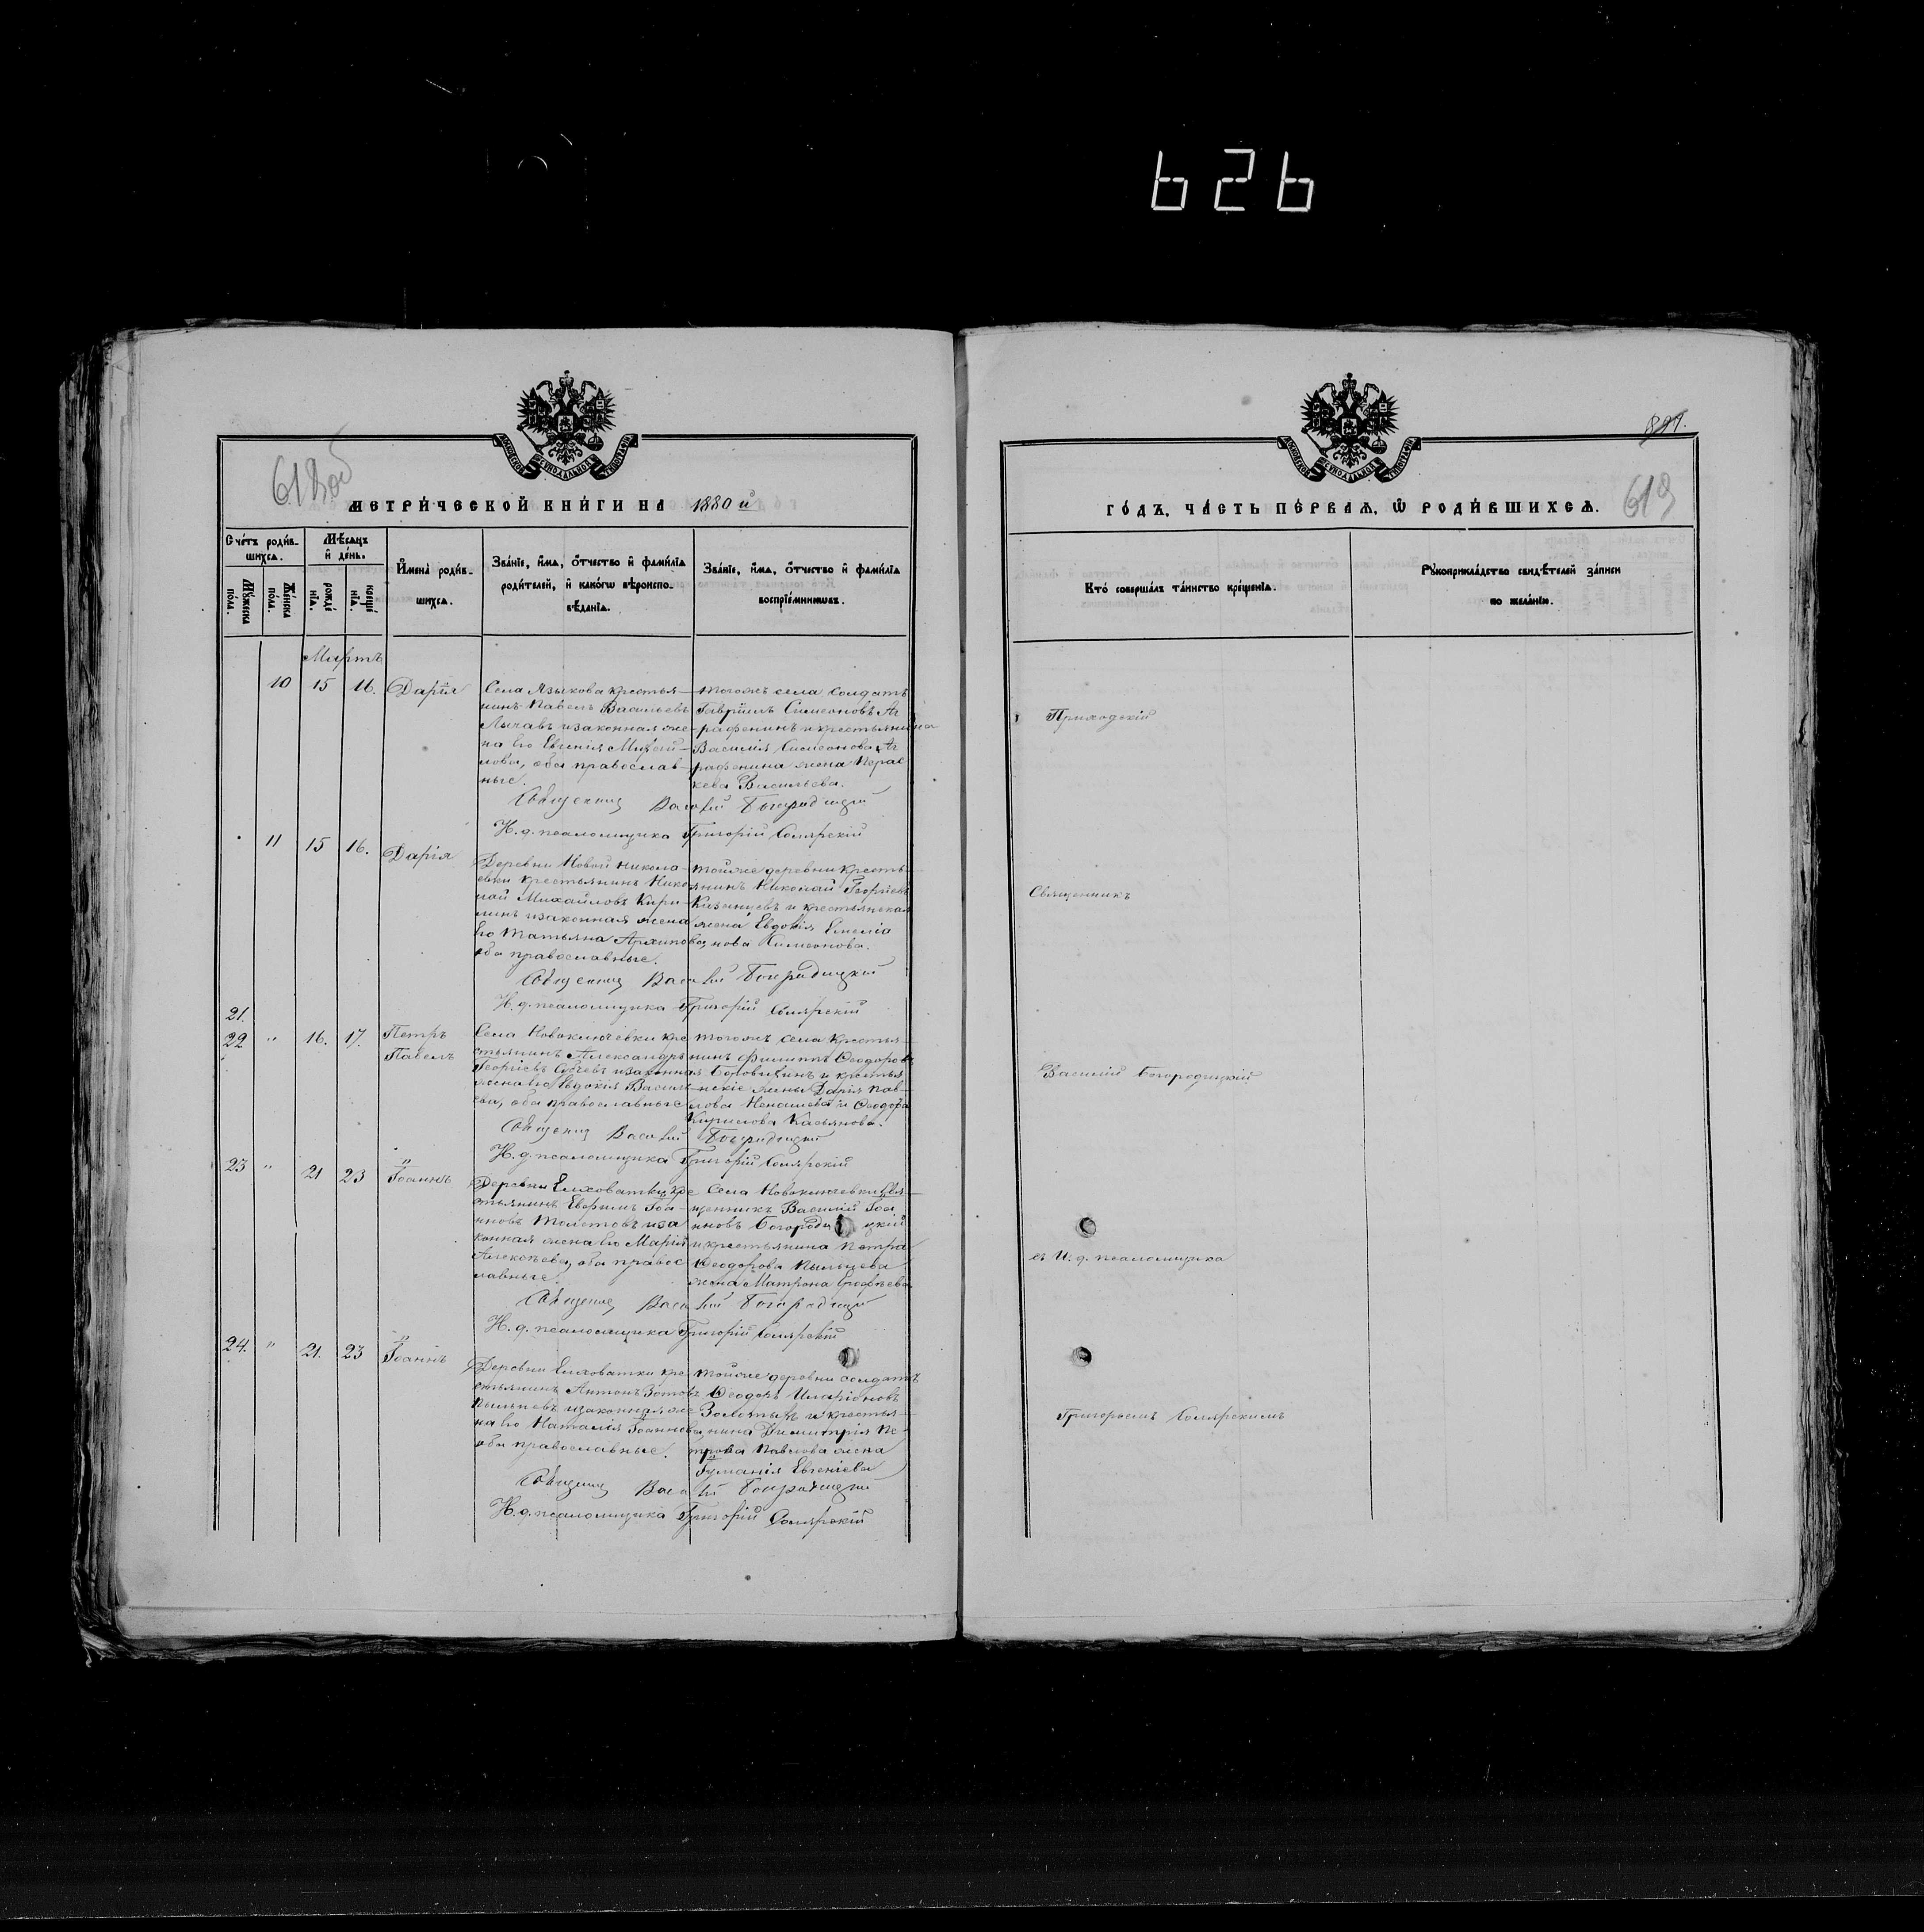 626
618об
МЕТРИ́ЧЕСКОЙ КНИ́ГИ НА 1880й
Сче́тъ роди́в-
шихсѧ.
Мѣ́сѧцъ
и҆ де́нь.
Мꙋ́жеска
пола.
Же́нска
пола.
рожде́
нїѧ.
креще́
нїѧ.
И҆мена̀ роди́в-
шихсѧ.
Зва́нїе, и҆́мѧ, ѻ҆́тчество и҆ фами́лїѧ
роди́телей, и҆ како́гѡ вѣроиспо-
вѣ́данїѧ.
Зва́нїе, и҆́мѧ, ѻ҆́тчество и҆ фами́лїѧ
воспрїе́мникѡвъ.
Мартъ
10 15 16. Дарія
Села Языкова крестья-
нинъ Павелъ Васильевъ
Лычавъ и законная же-
на его Евгенія Михай-
лова, оба православ-
ные.
тогожъ села Солдатъ
Гавріилъ Симеоновъ Аг
рафенинъ и крестьянина
Василія Симеонова Аг
рафенина жена Парас
кева Васильева.
Священникъ Василий Богородицкий
И. д. псаломщика Григорій Солярскій
11 15 16. Дарія
Деревни Новой Никола-
евки крестьянинъ Нико
лай Михайловъ Кири-
линъ и законная жена
его Татьяна Архипова,
оба православные.
тойже деревни кресть
янинъ Николай Георгіевъ
Казанцевъ и крестьянская
жена Евдокія Емелiа
нова Симеонова.
Священникъ Василий Богородицкий
И. д. псаломщика Григорій Солярскій
21.
22 " 16. 17. Петръ
Павелъ
Села Новоключевки кре
стьянинъ Александръ
Георгіевъ и законная
жена его Евдокія Василь-
ева, оба православные
тогожъ села крестья-
нинъ Филиппъ Ѳеодоровъ
и крестья
нскіе жены Дарія Пав-
лова Ненашева и Ѳеодора
Кирилова Касьянова.
Священникъ Василий Богородицкий
И. д. псаломщика Григорій Солярскій
23 " 21 23 Іоаннъ
Деревни Елховатки кре
стьянинъ Евфимъ Іоа-
нновъ Толстовъ и за
конная жена его Марія
Алексѣева, оба правос
лавные.
Села Новоключевки Свя-
щенникъ Василій Іоа
нновъ Богородицкій
и крестьянина Петра
Ѳеодорова Пыльцева
жена Матрона
Священникъ Василий Богородицкий
И. д. псаломщика Григорій Солярскій
24. " 21. 23 Іоаннъ
Деревни Елховатки кре
стьянинъ Антонъ Зотовъ
Пыльцевъ и законная же
на его Наталія Іоаннова
оба православные.
тойже деревни солдатъ
Ѳеодоръ Иларіоновъ
Золотыхъ и крестья-
нина Димитрія Пе-
трова Павлова жена
Іуліанія Евгеніева
Священникъ Василий Богородицкий
И. д. псаломщика Григорій Солярскій
619
ГО́ДЪ, ЧА́СТЬ ПЕ́РВАѦ, Ѽ РОДИ́ВШИХСѦ.
Кто̀ соверша́лъ та́инство креще́нїѧ.
Рꙋкоприкла́дство свидѣ́телей за́писи
по жела́нїю.
Приходскій
Священникъ
Василий Богородицкій
съ И. д. псаломщика
Григорьемъ Солярскимъ